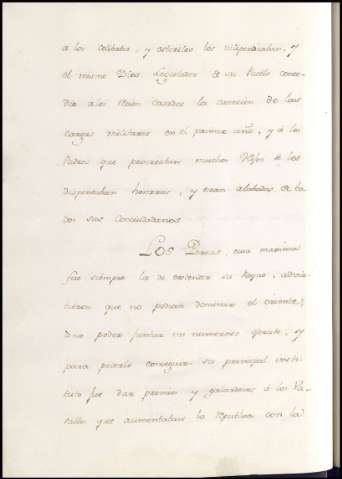 a los celibatos, y
el mismo Dios Legislador de su Pueblo conce-
dia a los recien casados la exencion de las
cargas militares en el primer año, y á los
Padres que procreaban muchos Hijos se les
dispensaban honores, y eran alabados de to-
dos sus Conciudadanos
Los Persas, cuia maxima
fue siempre la de extender su Reyno, advir-
tieron que no podian dominar el oriente,
sin poder juntar un numeroso exercito, y
para poderlo conseguir su principal insti-
tuto fue dar premios y galardones á los Va-
sallos que aumentaban la Republica con la